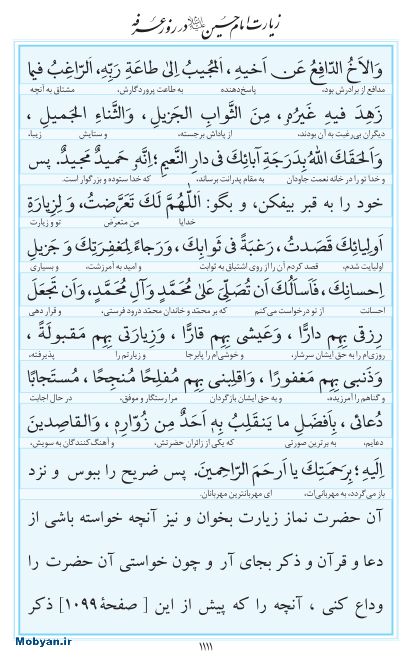 زیارت امام حسین علیه‌السلام در روز عرفه
وَالاَخُ الدّافِعُ عَن اَخیهِ ، اَلمُجیبُ اِلیٰ طاعَةِ رَبِّهِ، اَلرّاغِبُ فیما
مدافع از برادرش بود، پاسخ‌دهنده به طاعت پروردگارش، مشتاق به آنچه
زَهِدَ فیهِ غَیرُهُ ، مِنَ الثَّوابِ الجَزیلِ ، وَالثَّناءِ الجَمیلِ ،
دیگران بی‌رغبت به آن بودند، از پاداش برجسته، و ستایش زیبا،
وَاَلحَقَكَ اللهُ بِدَرَجَةِ آبائِكَ فی دارِ النَّعیمِ؛ اِنَّهُ حَمیدٌ مَجیدٌ. پس
و خدا تو را در خانه نعمت جاودان به مقام پدرانت برساند، که خدا ستوده و بزرگوار است.
خود را به قبر بیفکن، و بگو: اَللّٰهُمَّ لَكَ تَعَرَّضتُ، وَ لِزِیارَةِ
خدایا من متعرض تو و زیارت
اَولِیائِكَ قَصَدتُ، رَغبَةً فی ثَوابِكَ، وَرَجاءً لِمَغفِرَتِكَ وَ جَزیلِ
اولیایت شدم، قصد کردم آن را از روی اشتیاق به ثوابت و امید به آمرزشت، و بسیاری
اِحسانِكَ ، فَاَسأَلُكَ اَن تُصَلِّیَ عَلیٰ مُحَمَّدٍ وَآلِ مُحَمَّدٍ، وَاَن تَجعَلَ
احسانت از تو درخواست می‌کنم که بر محمّد و خاندان محمّد درود فرستی، و قرار دهی
رِزقی بِهِم دارًّا ، وَعَیشی بِهِم قارًّا ، وَزِیارَتی بِهِم مَقبولَةً ،
روزی‌ام را به حق ایشان سرشار، و خوشی‌ام را پابرجا و زیارتم را پذیرفته،
وَذَنبی بِهِم مَغفورًا ، وَاقلِبنی بِهِم مُفلِحًا مُنجِحًا ، مُستَجابًا
و گناهم را آمرزیده، و به حق ایشان بازگردان مرا رستگار و موفق، در حال اجابت
دُعائی ، بِاَفضَلِ ما یَنقَلِبُ بِهِ اَحَدٌ مِن زُوّارِهِ ، وَالقاصِدینَ
دعایم، به برترین صورتی که یکی از زائران حضرتش، و آهنگ‌کنندگان به سویش،
اِلَیهِ ؛ بِرَحمَتِكَ یا اَرحَمَ الرّاحِمینَ. پس ضریح را ببوس و نزد
باز می‌گردد، به مهربانی‌ات، ای مهربانترین مهربانان.
آن حضرت نماز زیارت بخوان و نیز آنچه خواسته باشی از
دعا و قرآن و ذکر بجای آر و چون خواستی آن حضرت را
وداع کنی ، آنچه را که پیش از این [ صفحهٔ ۱۰۹۹] ذکر
۱۱۱۱
Mobyan.ir